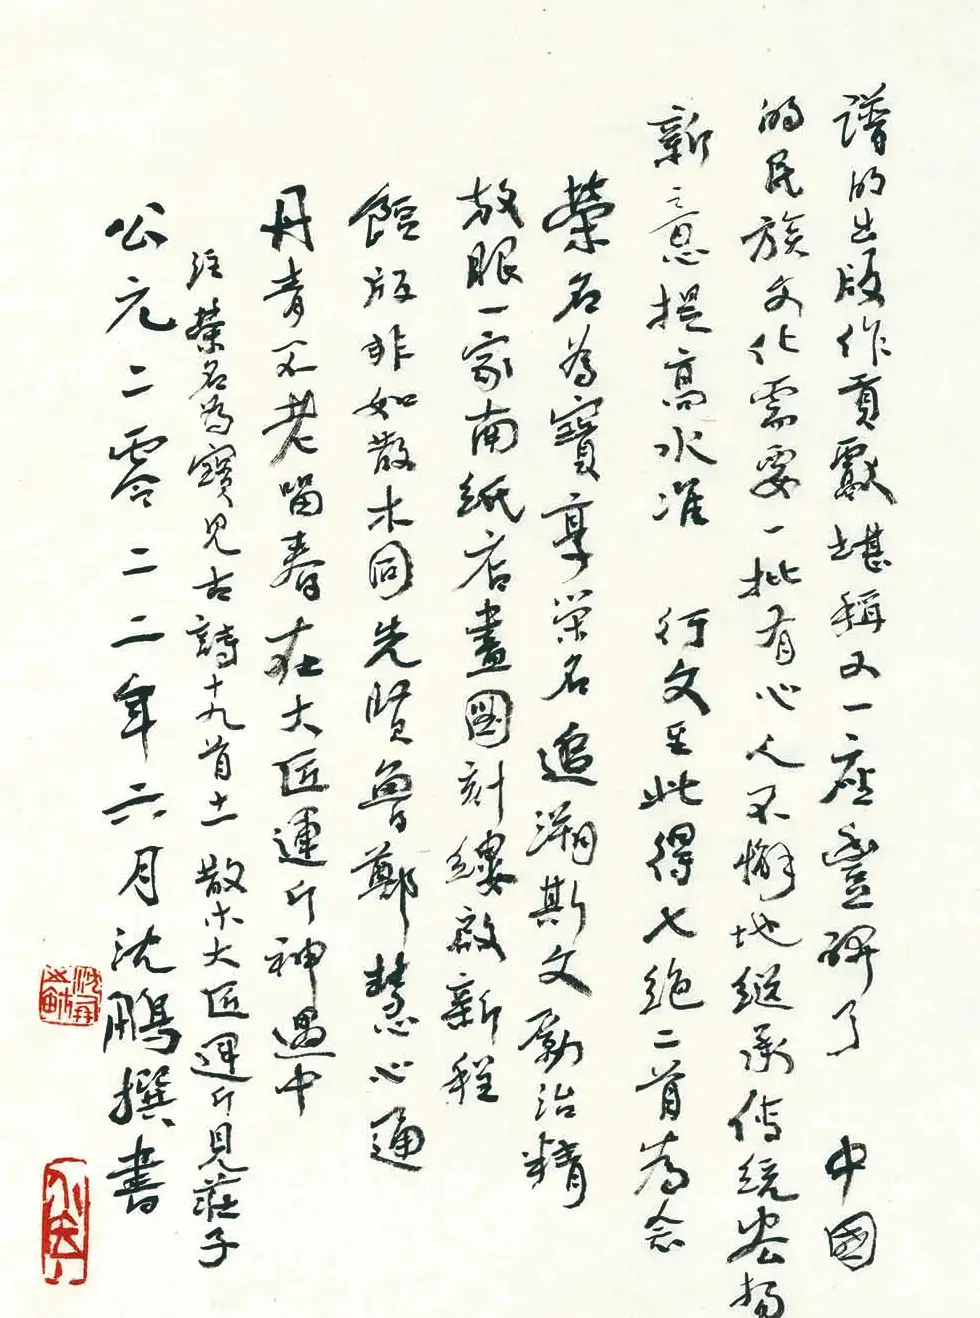 譜的出版作貢獻堪稱又一座豐碑了 中國
的民族文化需要一批有心人不懈地繼承傳統宏揚
新意提高水準 行文至此得七絶二首為念
榮名為寶享榮名追溯斯文勵治精
放眼一家南紙店畫圖刻縷啟新程
餖版非如散木同先賢魯鄭慧心通
丹青不老留春在大匠運斤神遇中
注榮名為寶見古詩十九首十一 散木大匠運斤見莊子
公元二零二二年六月沈鵬撰書
沈鵬